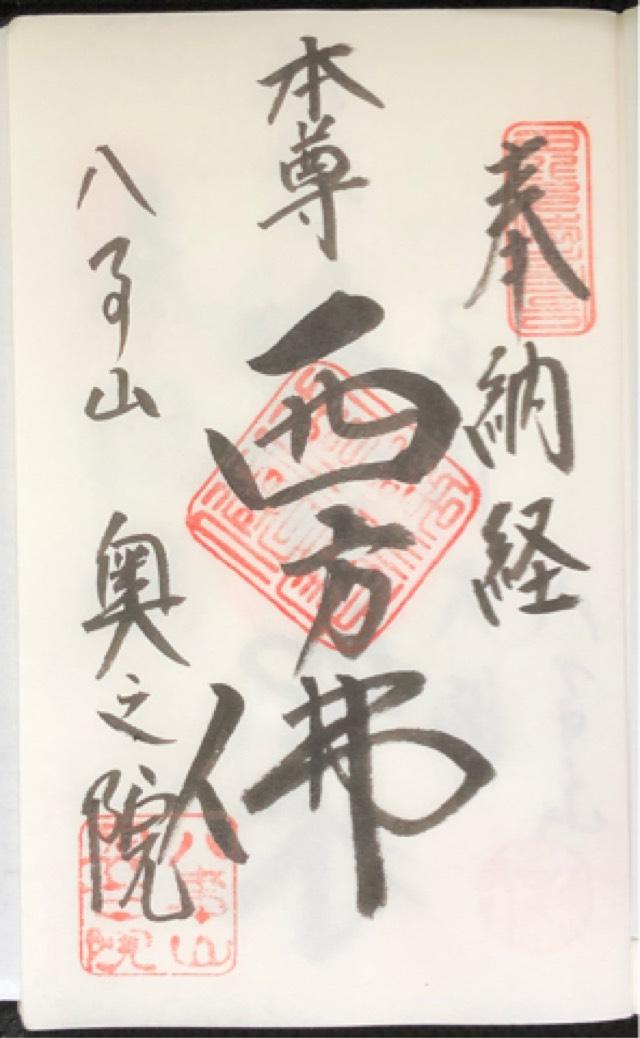 奉納経
本尊 西方佛
八事山 奥之院